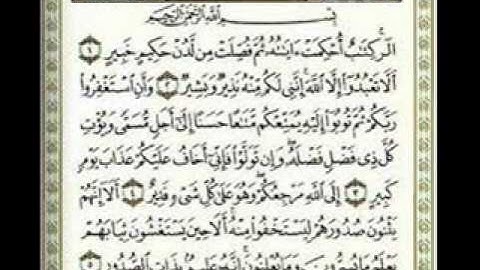 بِسْمِ اللَّهِ الرَّحْمَٰنِ الرَّحِيمِ
الٓر كِتَٰبٌ أُحْكِمَتْ ءَايَٰتُهُۥ ثُمَّ فُصِّلَتْ مِن لَّدُنْ حَكِيمٍ خَبِيرٍ ١
أَلَّا تَعْبُدُوٓا۟ إِلَّا ٱللَّهَ إِنَّنِى لَكُم مِّنْهُ نَذِيرٌ وَبَشِيرٌ ٢ وَأَنِ ٱسْتَغْفِرُوا۟
رَبَّكُمْ ثُمَّ تُوبُوٓا۟ إِلَيْهِ يُمَتِّعْكُم مَّتَٰعًا حَسَنًا إِلَىٰٓ أَجَلٍ مُّسَمًّى وَيُؤْتِ
كُلَّ ذِى فَضْلٍ فَضْلَهُۥ وَإِن تَوَلَّوْا۟ فَإِنِّىٓ أَخَافُ عَلَيْكُمْ عَذَابَ يَوْمٍ
كَبِيرٍ ٣ إِلَى ٱللَّهِ مَرْجِعُكُمْ وَهُوَ عَلَىٰ كُلِّ شَىْءٍ قَدِيرٌ ٤ أَلَآ إِنَّهُمْ
يَثْنُونَ صُدُورَهُمْ لِيَسْتَخْفُوا۟ مِنْهُ أَلَا حِينَ يَسْتَغْشُونَ ثِيَابَهُمْ
يَعْلَمُ مَا يُسِرُّونَ وَمَا يُعْلِنُونَ إِنَّهُۥ عَلِيمٌۢ بِذَاتِ ٱلصُّدُورِ ٥